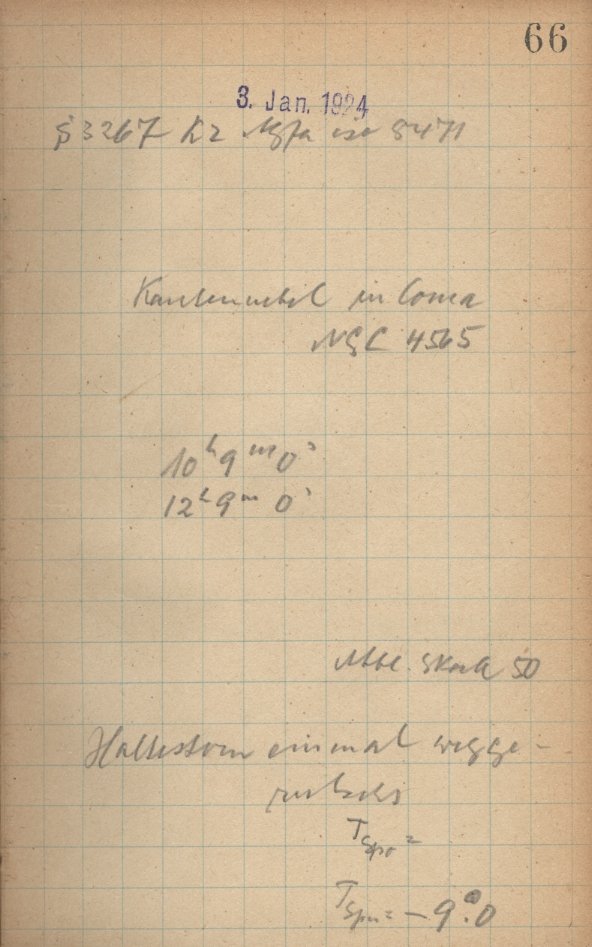 66
3. Jan. 1924
§3267 K2 Agfa iso 8471
Kantennebel in Coma
NGC 4565
10h 9m 0s
12h 9m 0s
Skala 50
Haltestern einmal wegge-
rutscht
T =
T = -9°.0